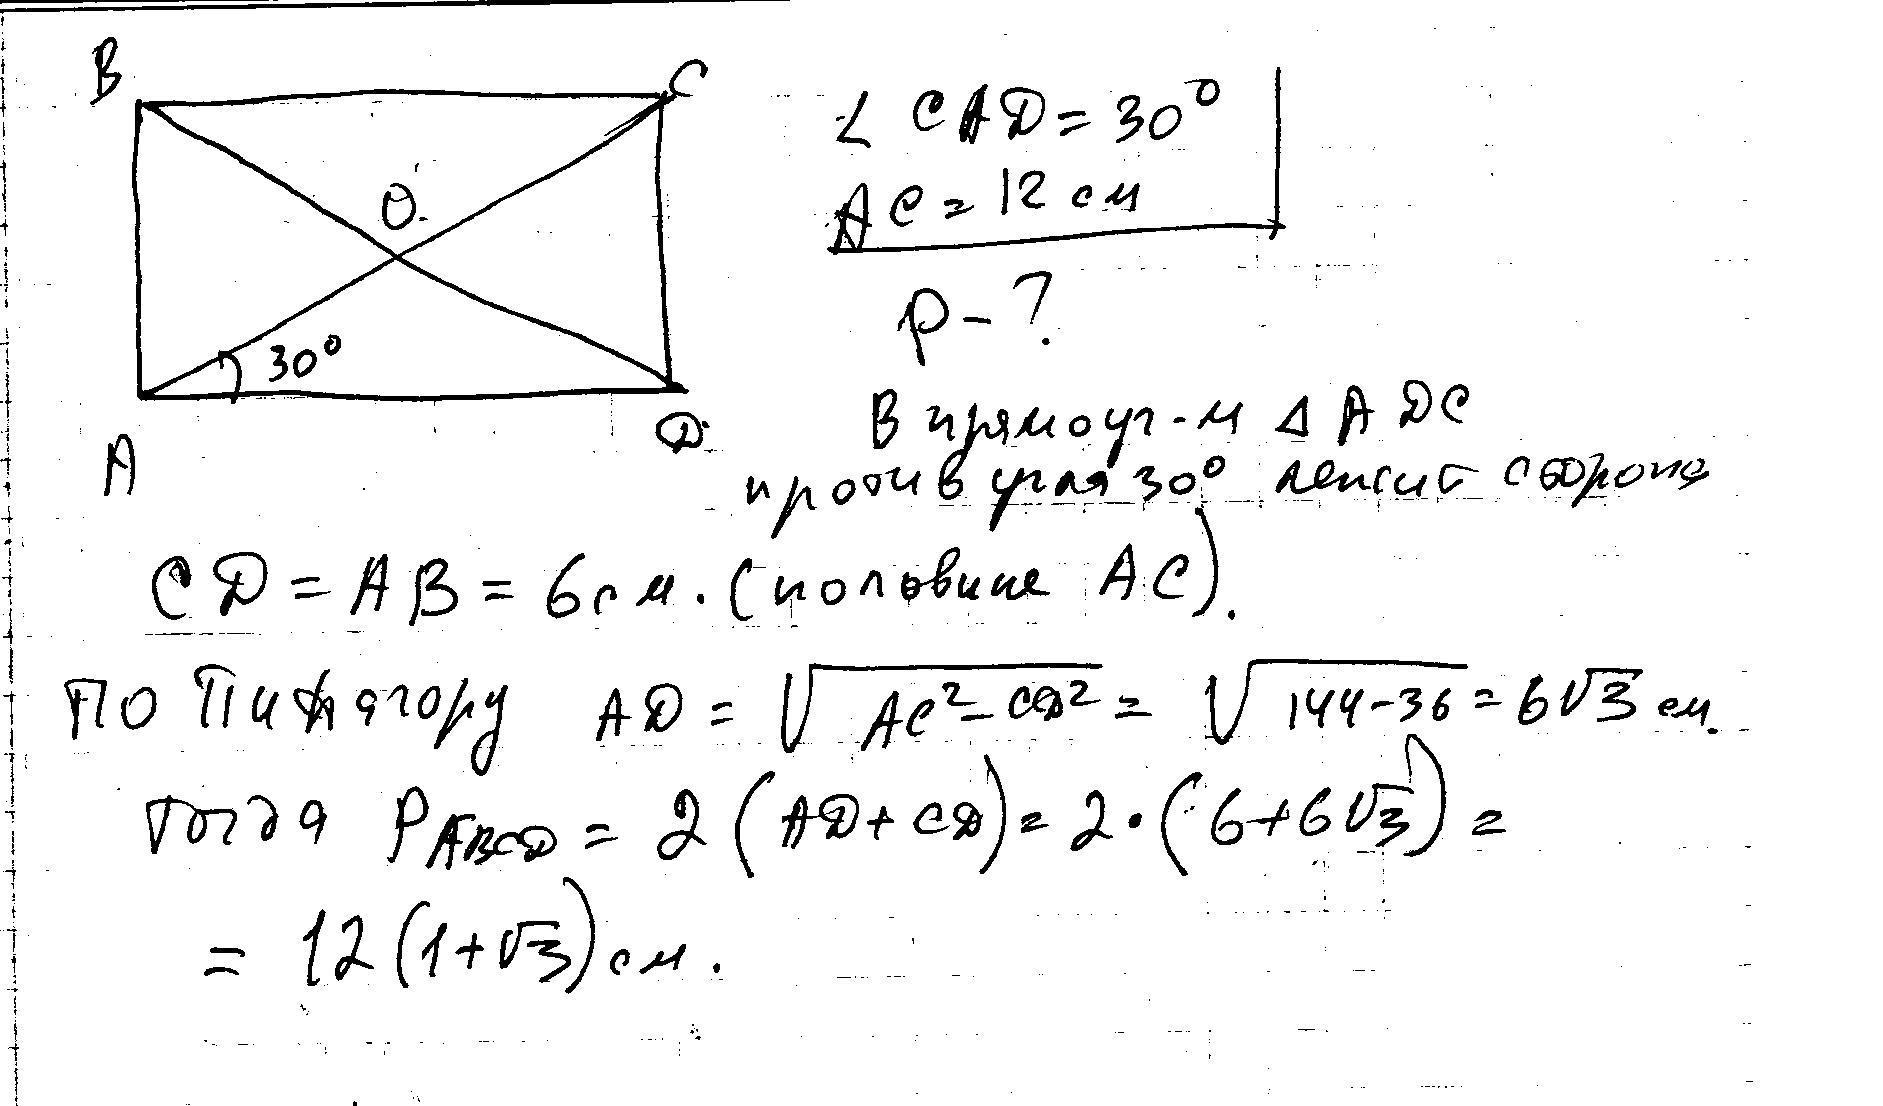 B
C
O
30°
A
D
∠ CAD = 30°
AC = 12 см
P - ?
В прямоуг-м Δ ADC
против угла 30° лежит сторона
CD = AB = 6 см. (половине AC).
По Пифагору AD = √(AC² - CD²) = √(144-36) = 6√3 см.
Тогда P ABCD = 2 (AD + CD) = 2 · (6+6√3) =
= 12 (1+√3) см.